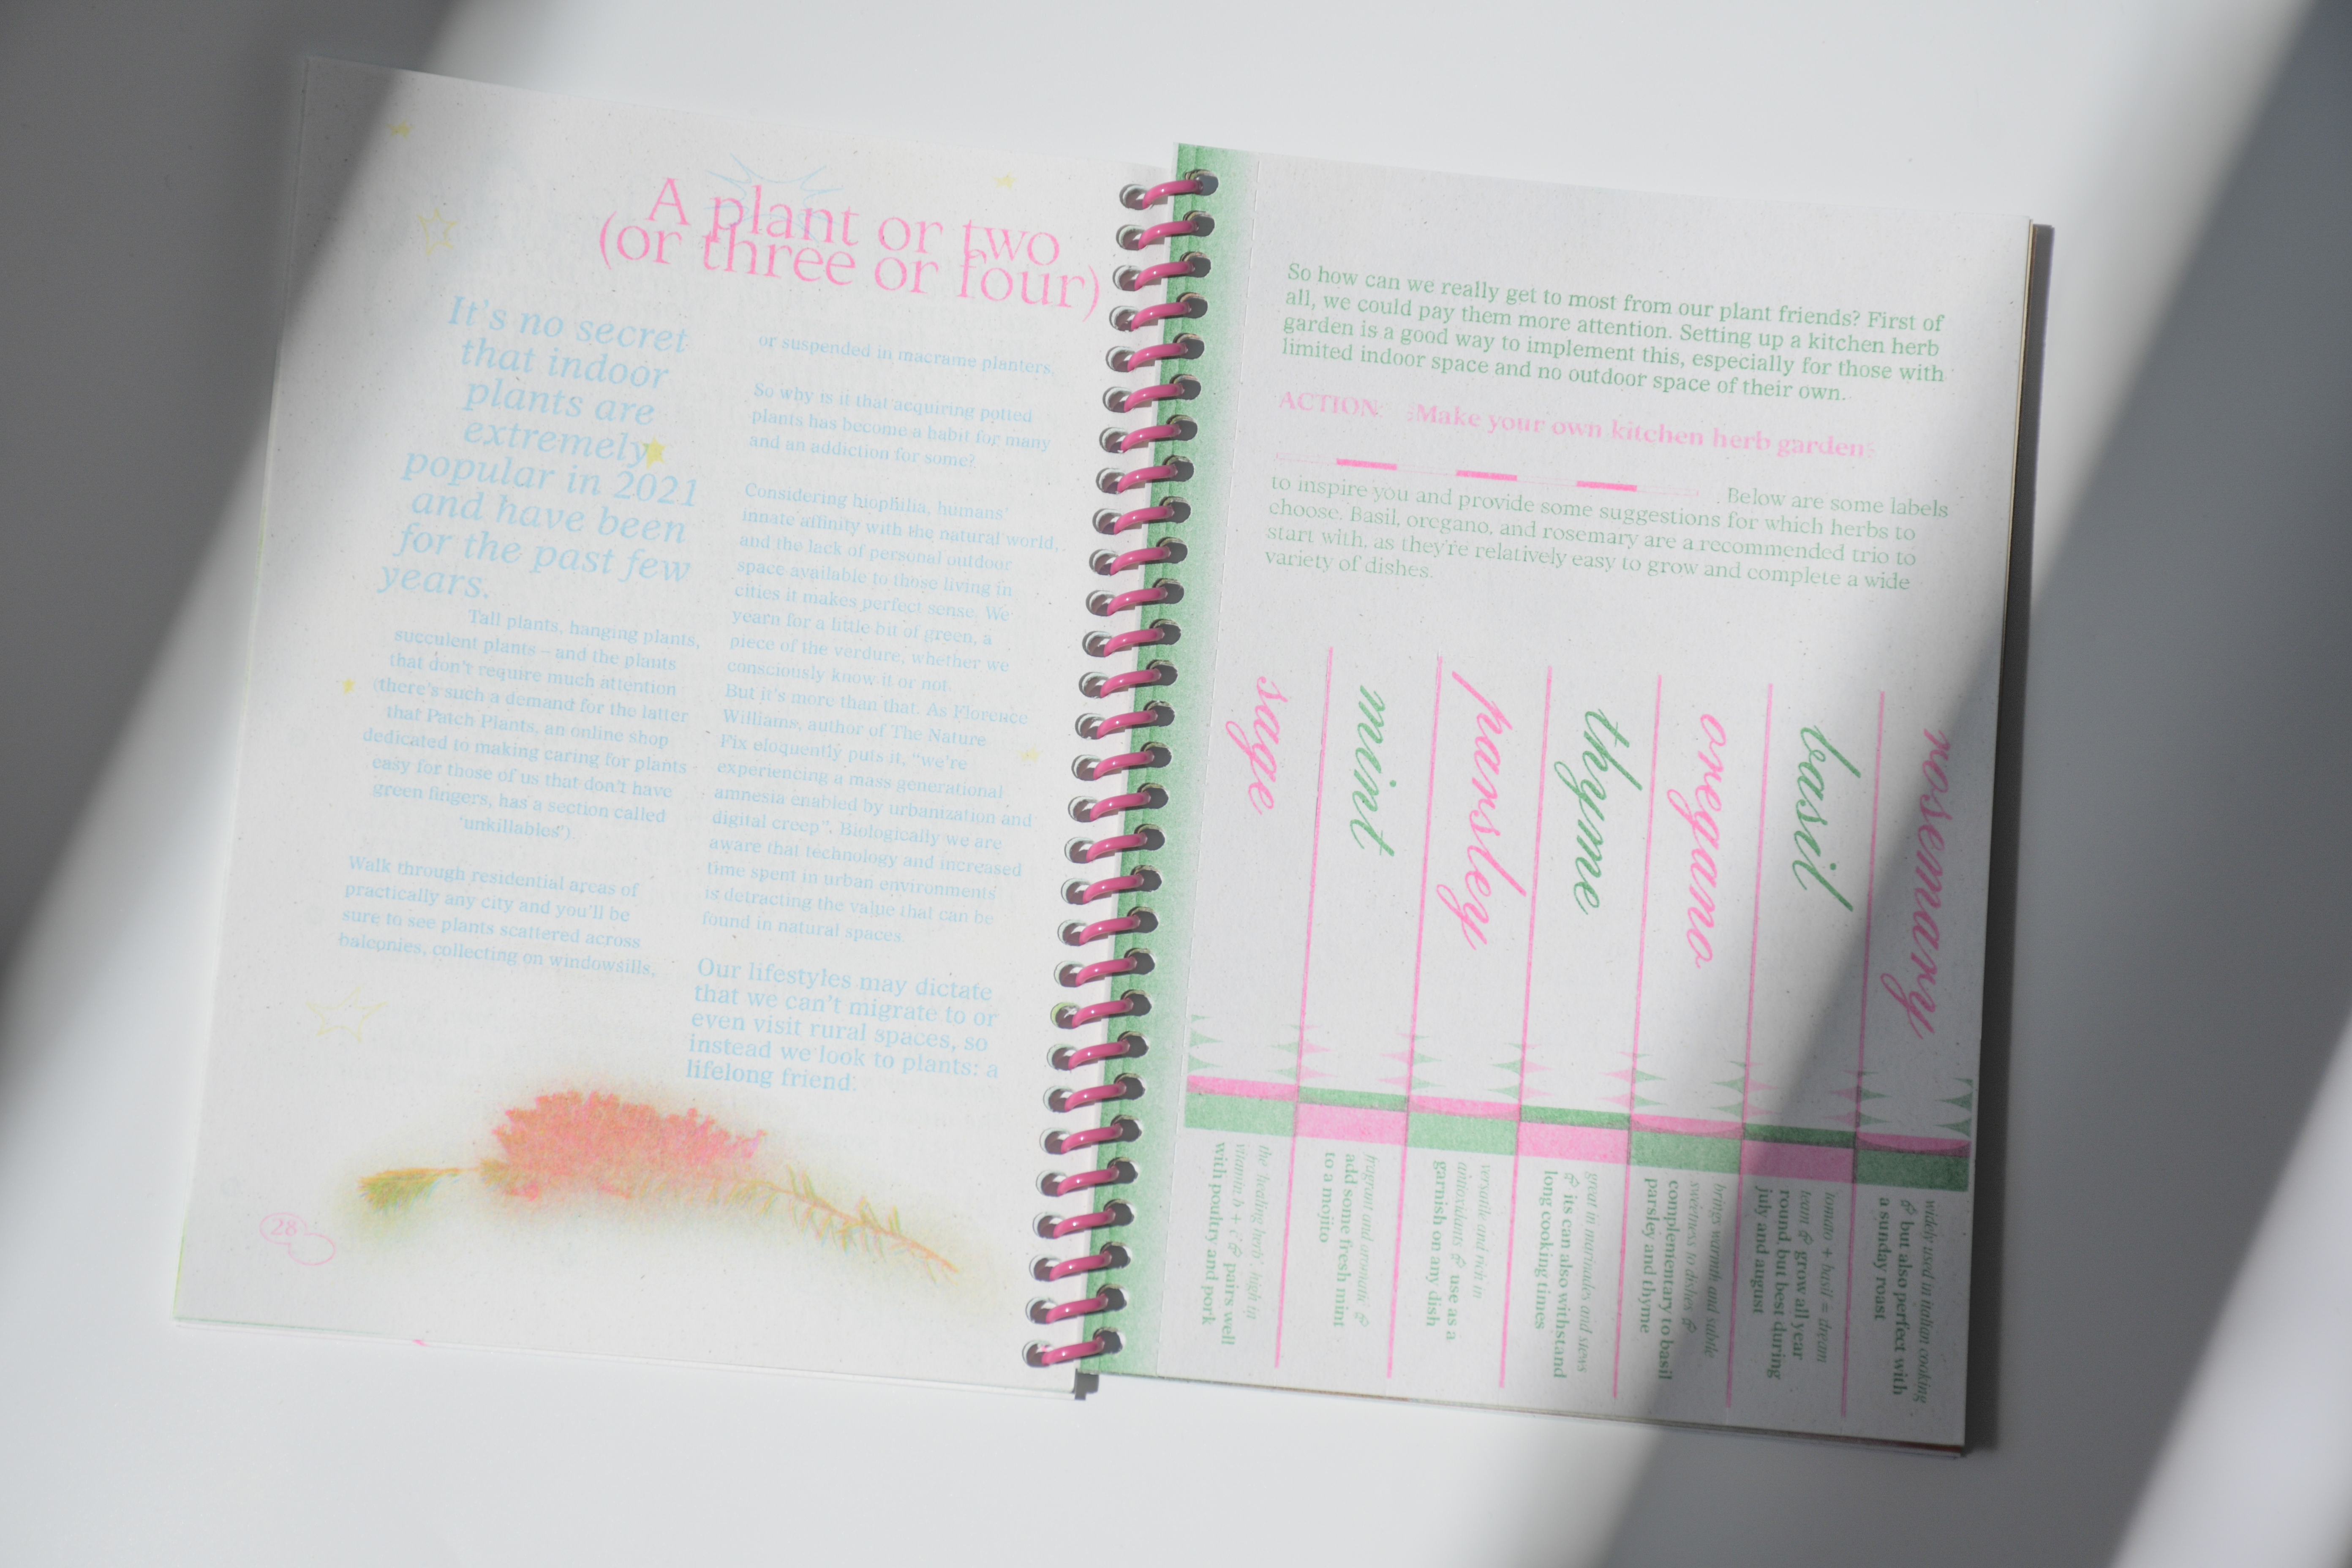 A plant or two
(or three or four)
It's no secret
that indoor
plants are
extremely
popular in 2021
and have been
for the past few
years.
Tall plants, hanging plants,
succulent plants – and the plants
that don't require much attention
(there's such a demand for the latter
that Patch Plants, an online shop
dedicated to making caring for plants
easy for those of us that don't have
green fingers, has a section called
'unkillables').
Walk through residential areas of
practically any city and you'll be
sure to see plants scattered across
balconies, collecting on windowsills,
or suspended in macrame planters.
So why is it that acquiring potted
plants has become a habit for many
and an addiction for some?
Considering biophilia, humans'
innate affinity with the natural world,
and the lack of personal outdoor
space available to those living in
cities it makes perfect sense. We
yearn for a little bit of green, a
piece of the verdure, whether we
consciously know it or not.
But it's more than that. As Florence
Williams, author of The Nature
Fix eloquently puts it, “we're
experiencing a mass generational
amnesia enabled by urbanization and
digital creep”. Biologically we are
aware that technology and increased
time spent in urban environments
is detracting the value that can be
found in natural spaces.
Our lifestyles may dictate
that we can't migrate to or
even visit rural spaces, so
instead we look to plants: a
lifelong friend.
28
So how can we really get to most from our plant friends? First of
all, we could pay them more attention. Setting up a kitchen herb
garden is a good way to implement this, especially for those with
limited indoor space and no outdoor space of their own.
ACTION: Make your own kitchen herb garden
. Below are some labels
to inspire you and provide some suggestions for which herbs to
choose. Basil, oregano, and rosemary are a recommended trio to
start with, as they're relatively easy to grow and complete a wide
variety of dishes.
sage
the healing herb, high in
vitamin b + c & pairs well
with poultry and pork
mint
fragrant and aromatic &
add some fresh mint
to a mojito
parsley
versatile and rich in
antioxidants & use as a
garnish on any dish
thyme
great in marinades and stews
& its can also withstand
long cooking times
oregano
brings warmth and subtle
sweetness to dishes &
complementary to basil
parsley and thyme
basil
tomato + basil = dream
team & grow all year
round, but best during
july and august
rosemary
widely used in italian cooking
& but also perfect with
a sunday roast